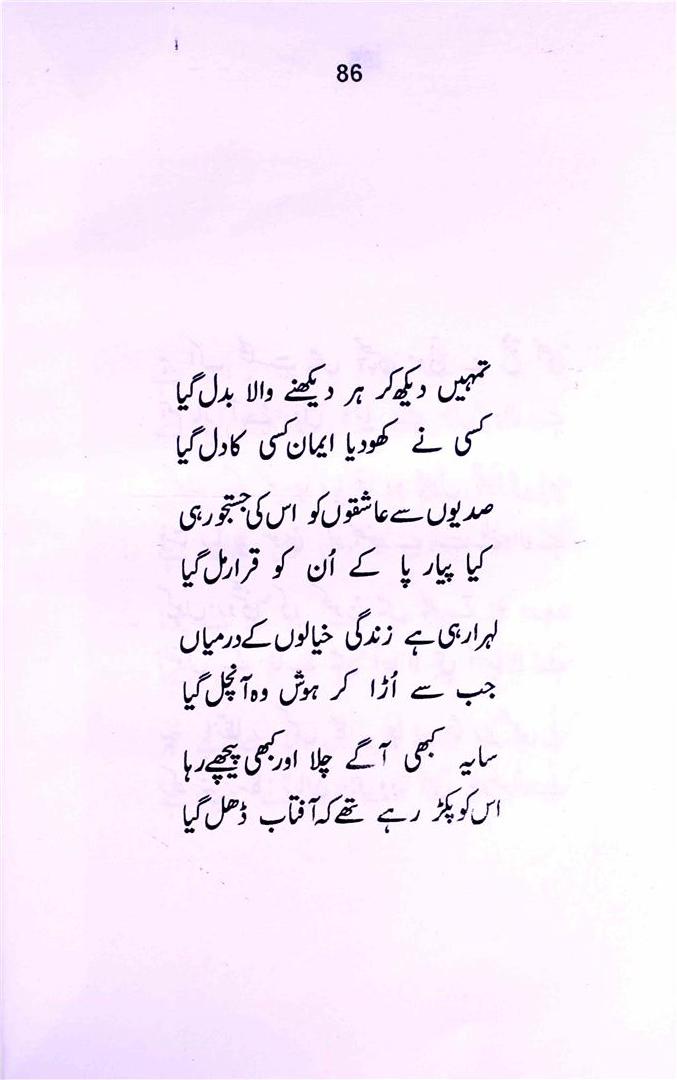 86
تمہیں دیکھ کر ہر دیکھنے والا بدل گیا
کسی نے کھودیا ایمان کسی کا دل گیا
صدیوں سے عاشقوں کو اس کی جستجو رہی
کیا پیار پا کے اُن کو قرار مل گیا
لہرا رہی ہے زندگی خیالوں کے درمیاں
جب سے اُڑا کر ہوش وہ آنچل گیا
سایہ کبھی آگے چلا اور کبھی پیچھے رہا
اس کو پکڑ رہے تھے کہ آفتاب ڈھل گیا